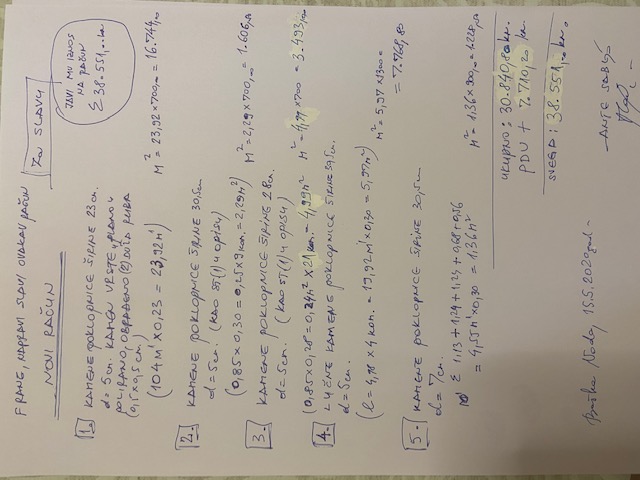 FRANE, NAPRAVI SLAVI OVAKAV RAČUN
NOVI RAČUN
ZA SLAVU
JAVI MU IZNOS
NA RAČUN
Σ 38.551,00 kn
1. KAMENE POKLOPNICE ŠIRINE 23 cm.
d = 5cm. KAMEN VRSTE „PLANO"
POLIRANO, OBRAĐENO (2) DUŽA RUBA
(0,5 x 0,5 cm.)
(104 M¹ x 0,23 = 23,92 m²) M² = 23,92 x 700,00 = 16.744,00
2. KAMENE POKLOPNICE ŠIRINE 30,5 cm
d = 5cm. (KAO ST(1) U OPISU)
(0,85 x 0,30 = 0,25 x 9 kom. = 2,29 m²) M² = 2,29 x 700,00 = 1.606,50
3. KAMENE POKLOPNICE ŠIRINE 28 cm.
d = 5cm. (KAO ST(1) U OPISU)
(0,85 x 0,28 = 0,24 m² x 21 kom. = 4,99 m² M² = 4,99 x 700 = 3.493,00
4. LUČNE KAMENE POKLOPNICE ŠIRINE 30,5 cm.
d = 5cm.
(l = 4,98 x 4 kom. = 19,92 m¹ x 0,30 = 5,97 m²) M² = 5,97 x 1300 =
= 7.768,80
5. KAMENE POKLOPNICE ŠIRINE 30,5 cm
d = 7cm.
Σ 1,13 + 1,24 + 1,24 + 0,68 + 0,56
= 4,55 m¹ x 0,30 = 1,36 m² M² = 1,36 x 900,00 = 1.228,50
UKUPNO: 30.840,80 kn.
PDV + 7.710,20 kn.
SVEGA: 38.551,00 kn.
Baška Voda, 15.5.2020 god.
ANTE